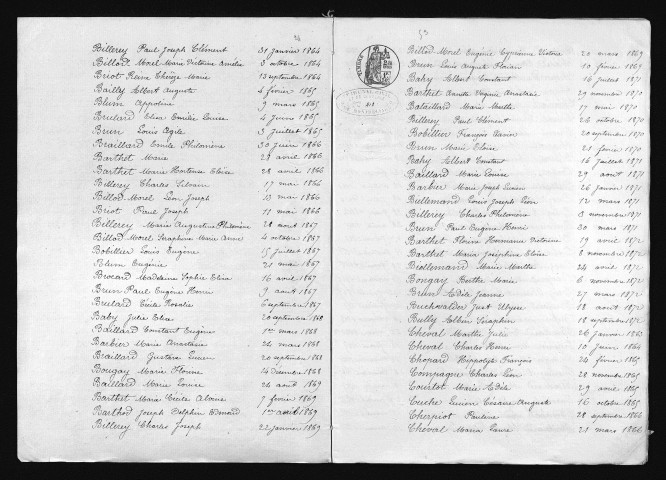 Billerey Paul Joseph Clément 31 janvier 1864
Billod Morel Marie Victoire Amélie 3 octobre 1864
Briot Reine Thérèze Marie 13 septembre 1864
Bailly Albert Auguste 4 février 1865
Blum Appoline 9 mars 1865
Brulard Elisa Emilie Louise 4 juin 1865
Brun Louis 3 juillet 1865
Braillard Emile Philomène 30 juin 1866
Barthet Marie 29 avril 1866
Barthet Marie Hortense Elise 28 avril 1866
Billerey Charles Silvain 17 mai 1866
Billod Morel Léon Joseph 10 mai 1866
Briot Paul Joseph 11 mai 1866
Billerey Marie Augustine Philomène 28 août 1867
Billod Morel Séraphine Marie 4 octobre 1867
Bobillier Louis Eugène 15 juillet 1867
Blum Eugénie 21 mai 1867
Brocard Madeleine Sophie Elisa 16 avril 1867
Brun Paul Eugène Henri 9 août 1867
Brulard Cécile Rosalie 6 septembre 1867
Baby Julie Elise 20 septembre 1868
Baillard Constant Eugène 1er mars 1868
Barbier Marie Anastasie 24 mars 1868
Braillard Gustave 20 septembre 1868
Bougay Marie 24 décembre 1868
Baillard Marie Louise 26 août 1869
Barthet Marie Cécile 7 février 1869
Barthod Joseph Delphin 1869
Billerey Charles Joseph 22 janvier 1869
53
Billod Morel Eugénie Cyprienne Victoria 20 mars 1869
Brun Louis August Florian 10 février 1869
Bahy Albert Constant 16 juillet 1871
Barthet Virginie Anastasie 29 novembre 1870
Bataillard Marie Marthe 17 mai 1870
Billerey Paul Clément 26 octobre 1870
Bobillier François Xavier 20 septembre 1870
Brun Marie 21 février 1870
Bahy Albert Constant 16 juillet 1871
Baillard Marie Louise 29 août 1871
Barbier Marie Joseph Lucien 26 janvier 1871
Bullemand Louis Joseph Léon 12 mars 1871
Billerey Charles Philomène 8 novembre 1871
Brun Paul Eugène Henri 30 mars 1871
Barthet Hermance Victorine 19 avril 1872
Barthet Marie Joséphine Elise 8 novembre 1872
Marie Marthe 24 avril 1872
Bongay Berthe Marie 6 novembre 1872
Brun Adèle Jeanne 27 mars 1872
Buchwalder Just Ulysse 18 août 1872
Bully Albin Séraphin 18 septembre 1872
Cheval Marthe Julie 26 janvier 1863
Cheval Charles Henri 10 juin 1864
Chopard Hippolyte François 24 février 1865
Compagne Charles Léon 28 novembre 1865
Courlot Marie Adèle 29 avril 1865
Cuche Lucien Césaire Auguste 16 octobre 1865
Cherpiot Pauline 28 septembre 1866
Cheval Maria Laure 21 mars 1866